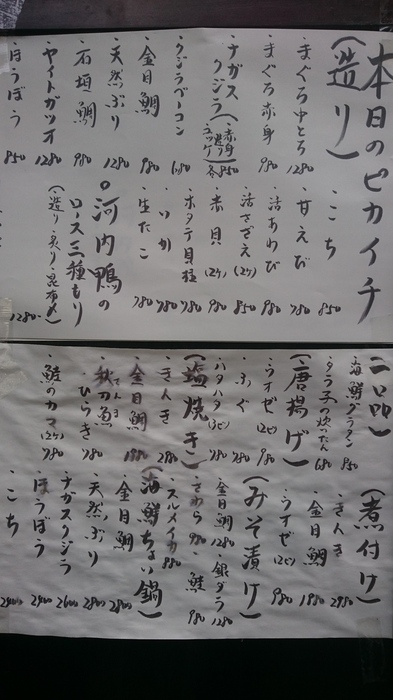 本日のピカイチ
(造り)
・まぐろ中とろ 1280
・まぐろ赤身 980
・ナガスクジラ(赤身 各850
・クジラベーコン 680
・金目鯛 980
・天然ぶり 1280
・石垣鯛 980
・ヤイトガツオ 1280
・ほうぼう 850
・こち 850
・甘えび 780
・活あわび 980
・活さざえ(2ヶ) 850
・赤貝(2ヶ) 980
・ホタテ貝柱 780
・いか 780
・生たこ 780
○河内鴨の
ロース三種もり
(造り・炙り・昆布〆)
1280-
(一品)
・海鮮グラタン 850
・タラ子の炊いたん 680
(唐揚げ)
・うオゼ(2ヒ) 980
・ふぐ 780
・ハタハタ(3ヒ) 780
(塩焼き)
・きんき 2980
・金目鯛 1980
・秋刀魚 780
・てんき
ひらき 780
・鮭のカマ(2ケ) 780
(煮付け)
・きんき 2980
・金目鯛 1980
・うオゼ(2ヒ) 980
(みそ漬け)
・金目鯛 1280
・銀ダラ 1280
・さわら 980
・鮭 980
・スルメイカ 880
(海鮮ちょい鍋)
・金目鯛 2800
・天然ぶり 2800
・ナガスクジラ 2600
・ほうぼう 2400
・こち 2400